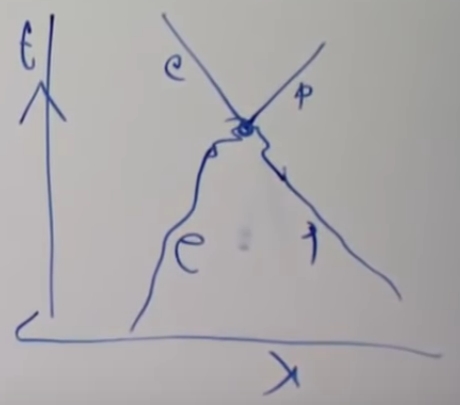 t
e
p
e
x